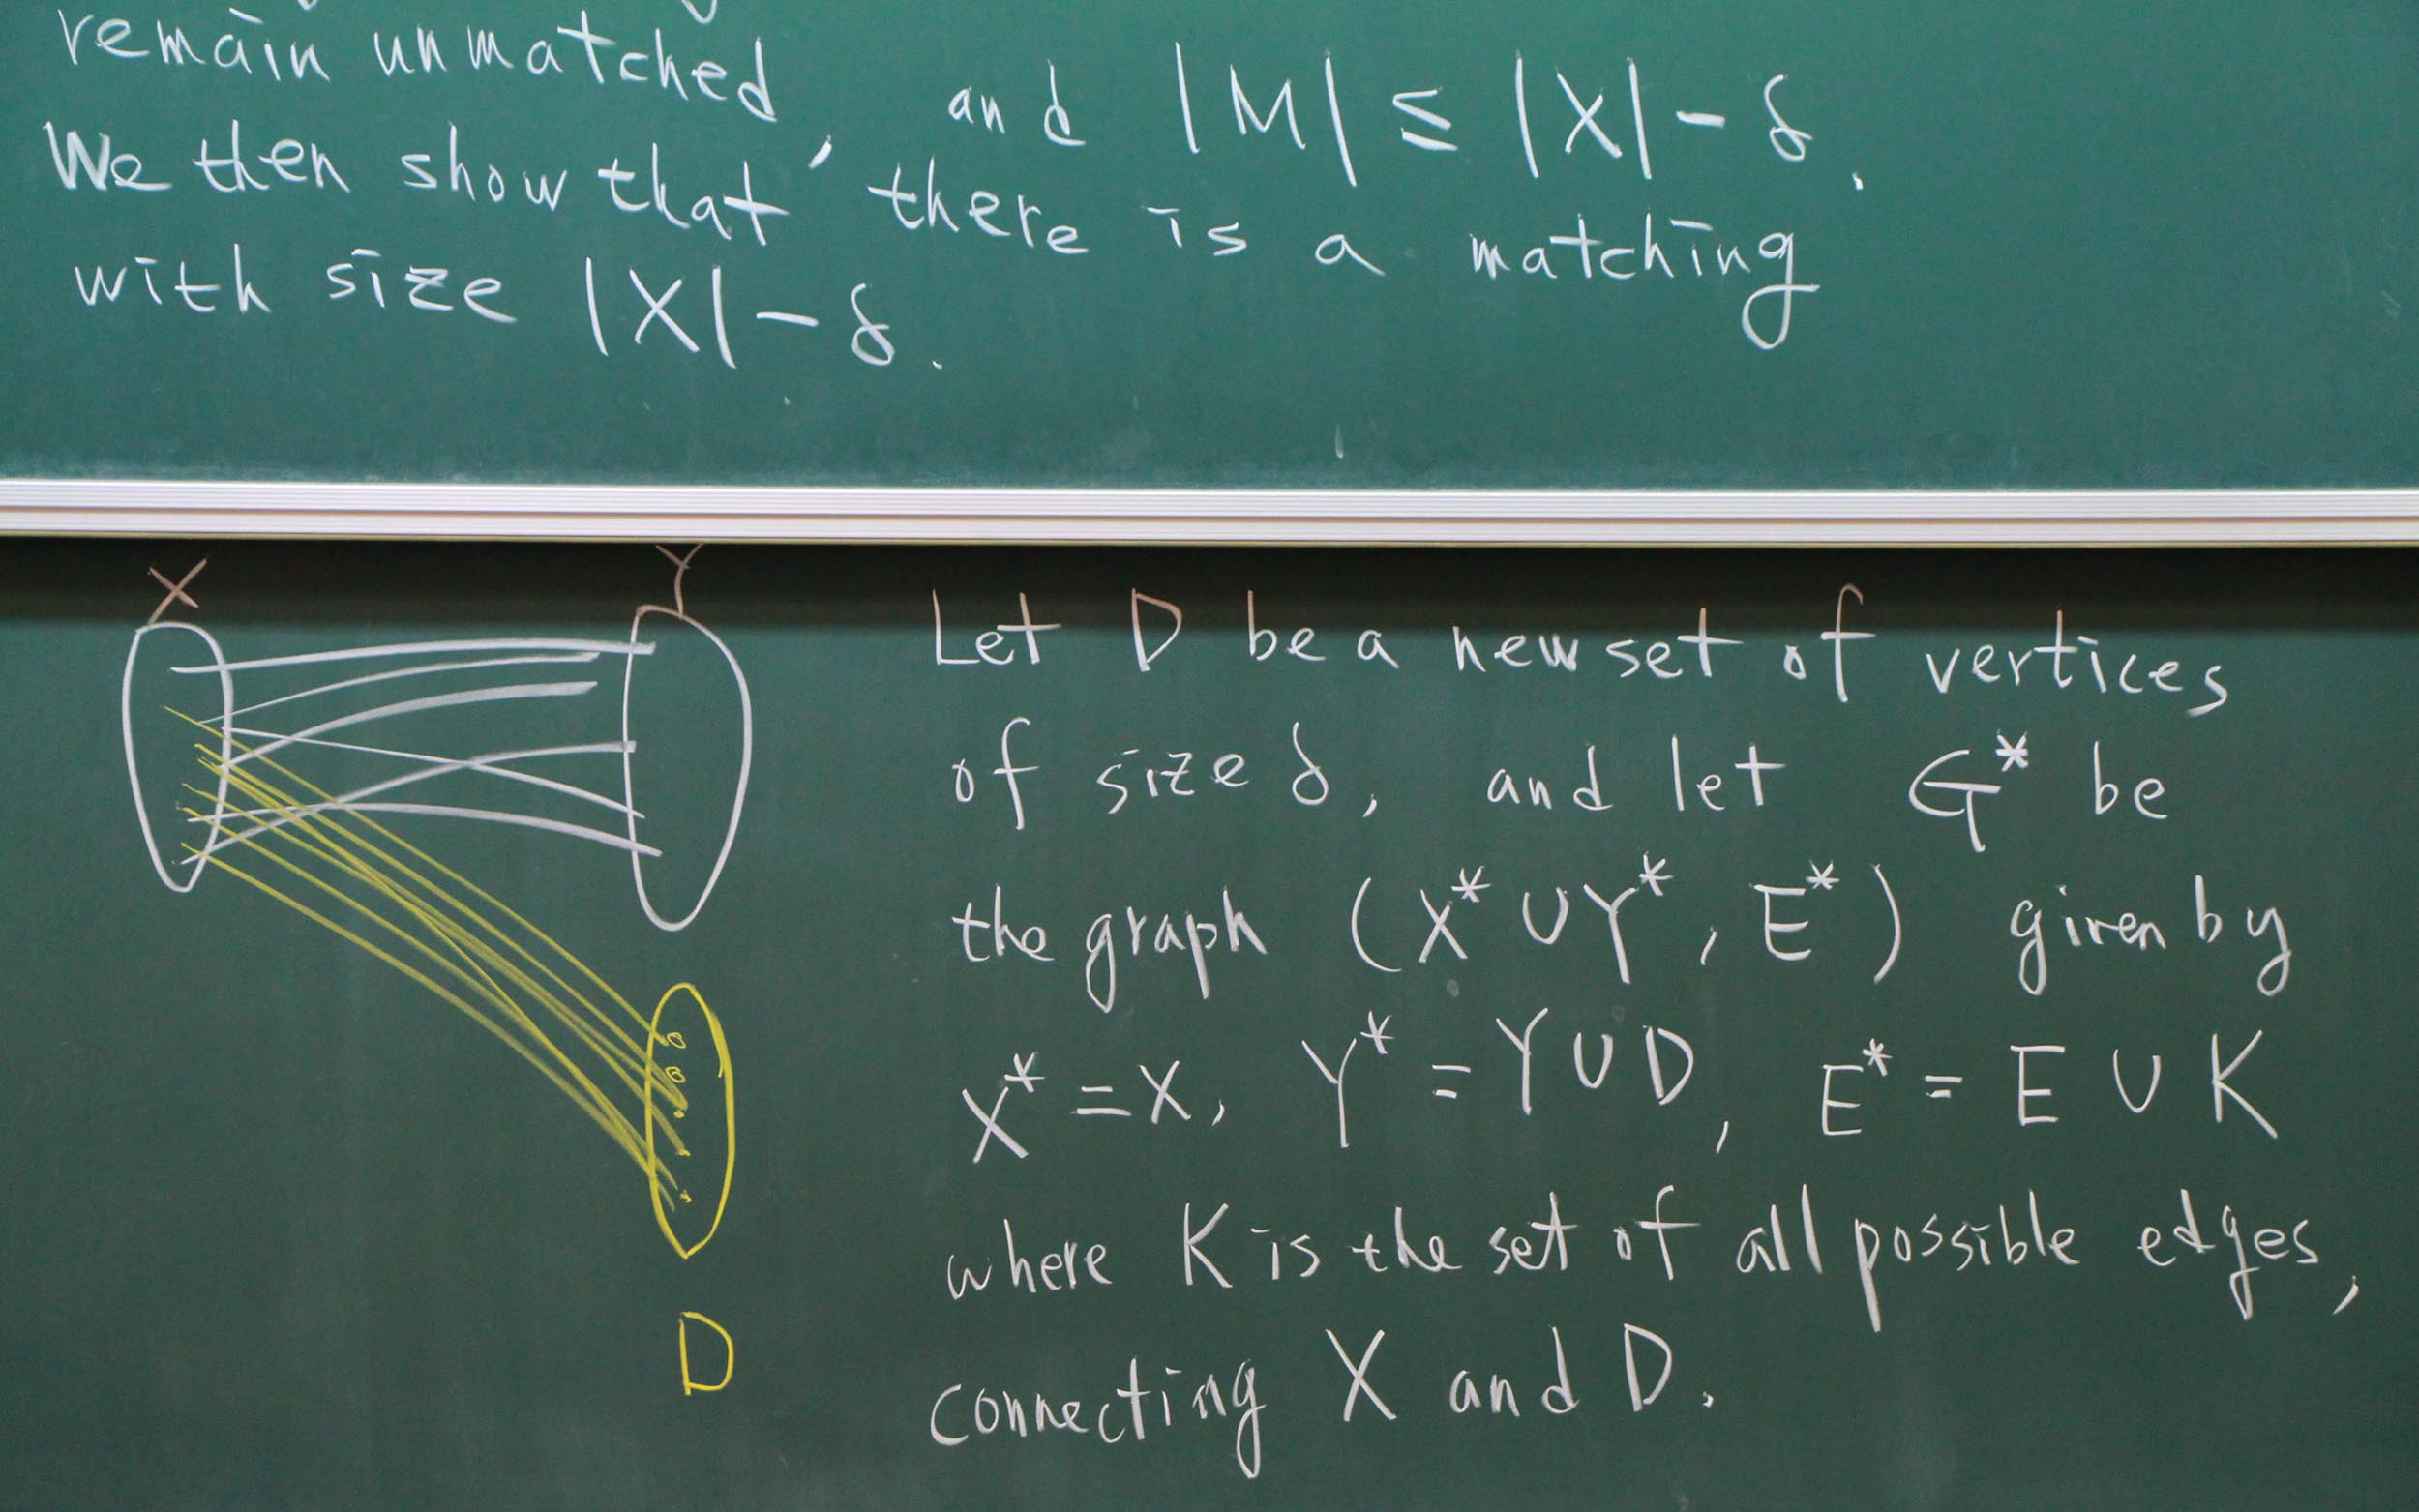 remain unmatched, and |M| ≤ |X| - δ.
We then show that there is a matching
with size |X| - δ.
X
Y
D
Let D be a new set of vertices
of size δ, and let G* be
the graph (X* ∪ Y*, E*) given by
X* = X, Y* = Y ∪ D, E* = E ∪ K
where K is the set of all possible edges,
connecting X and D.